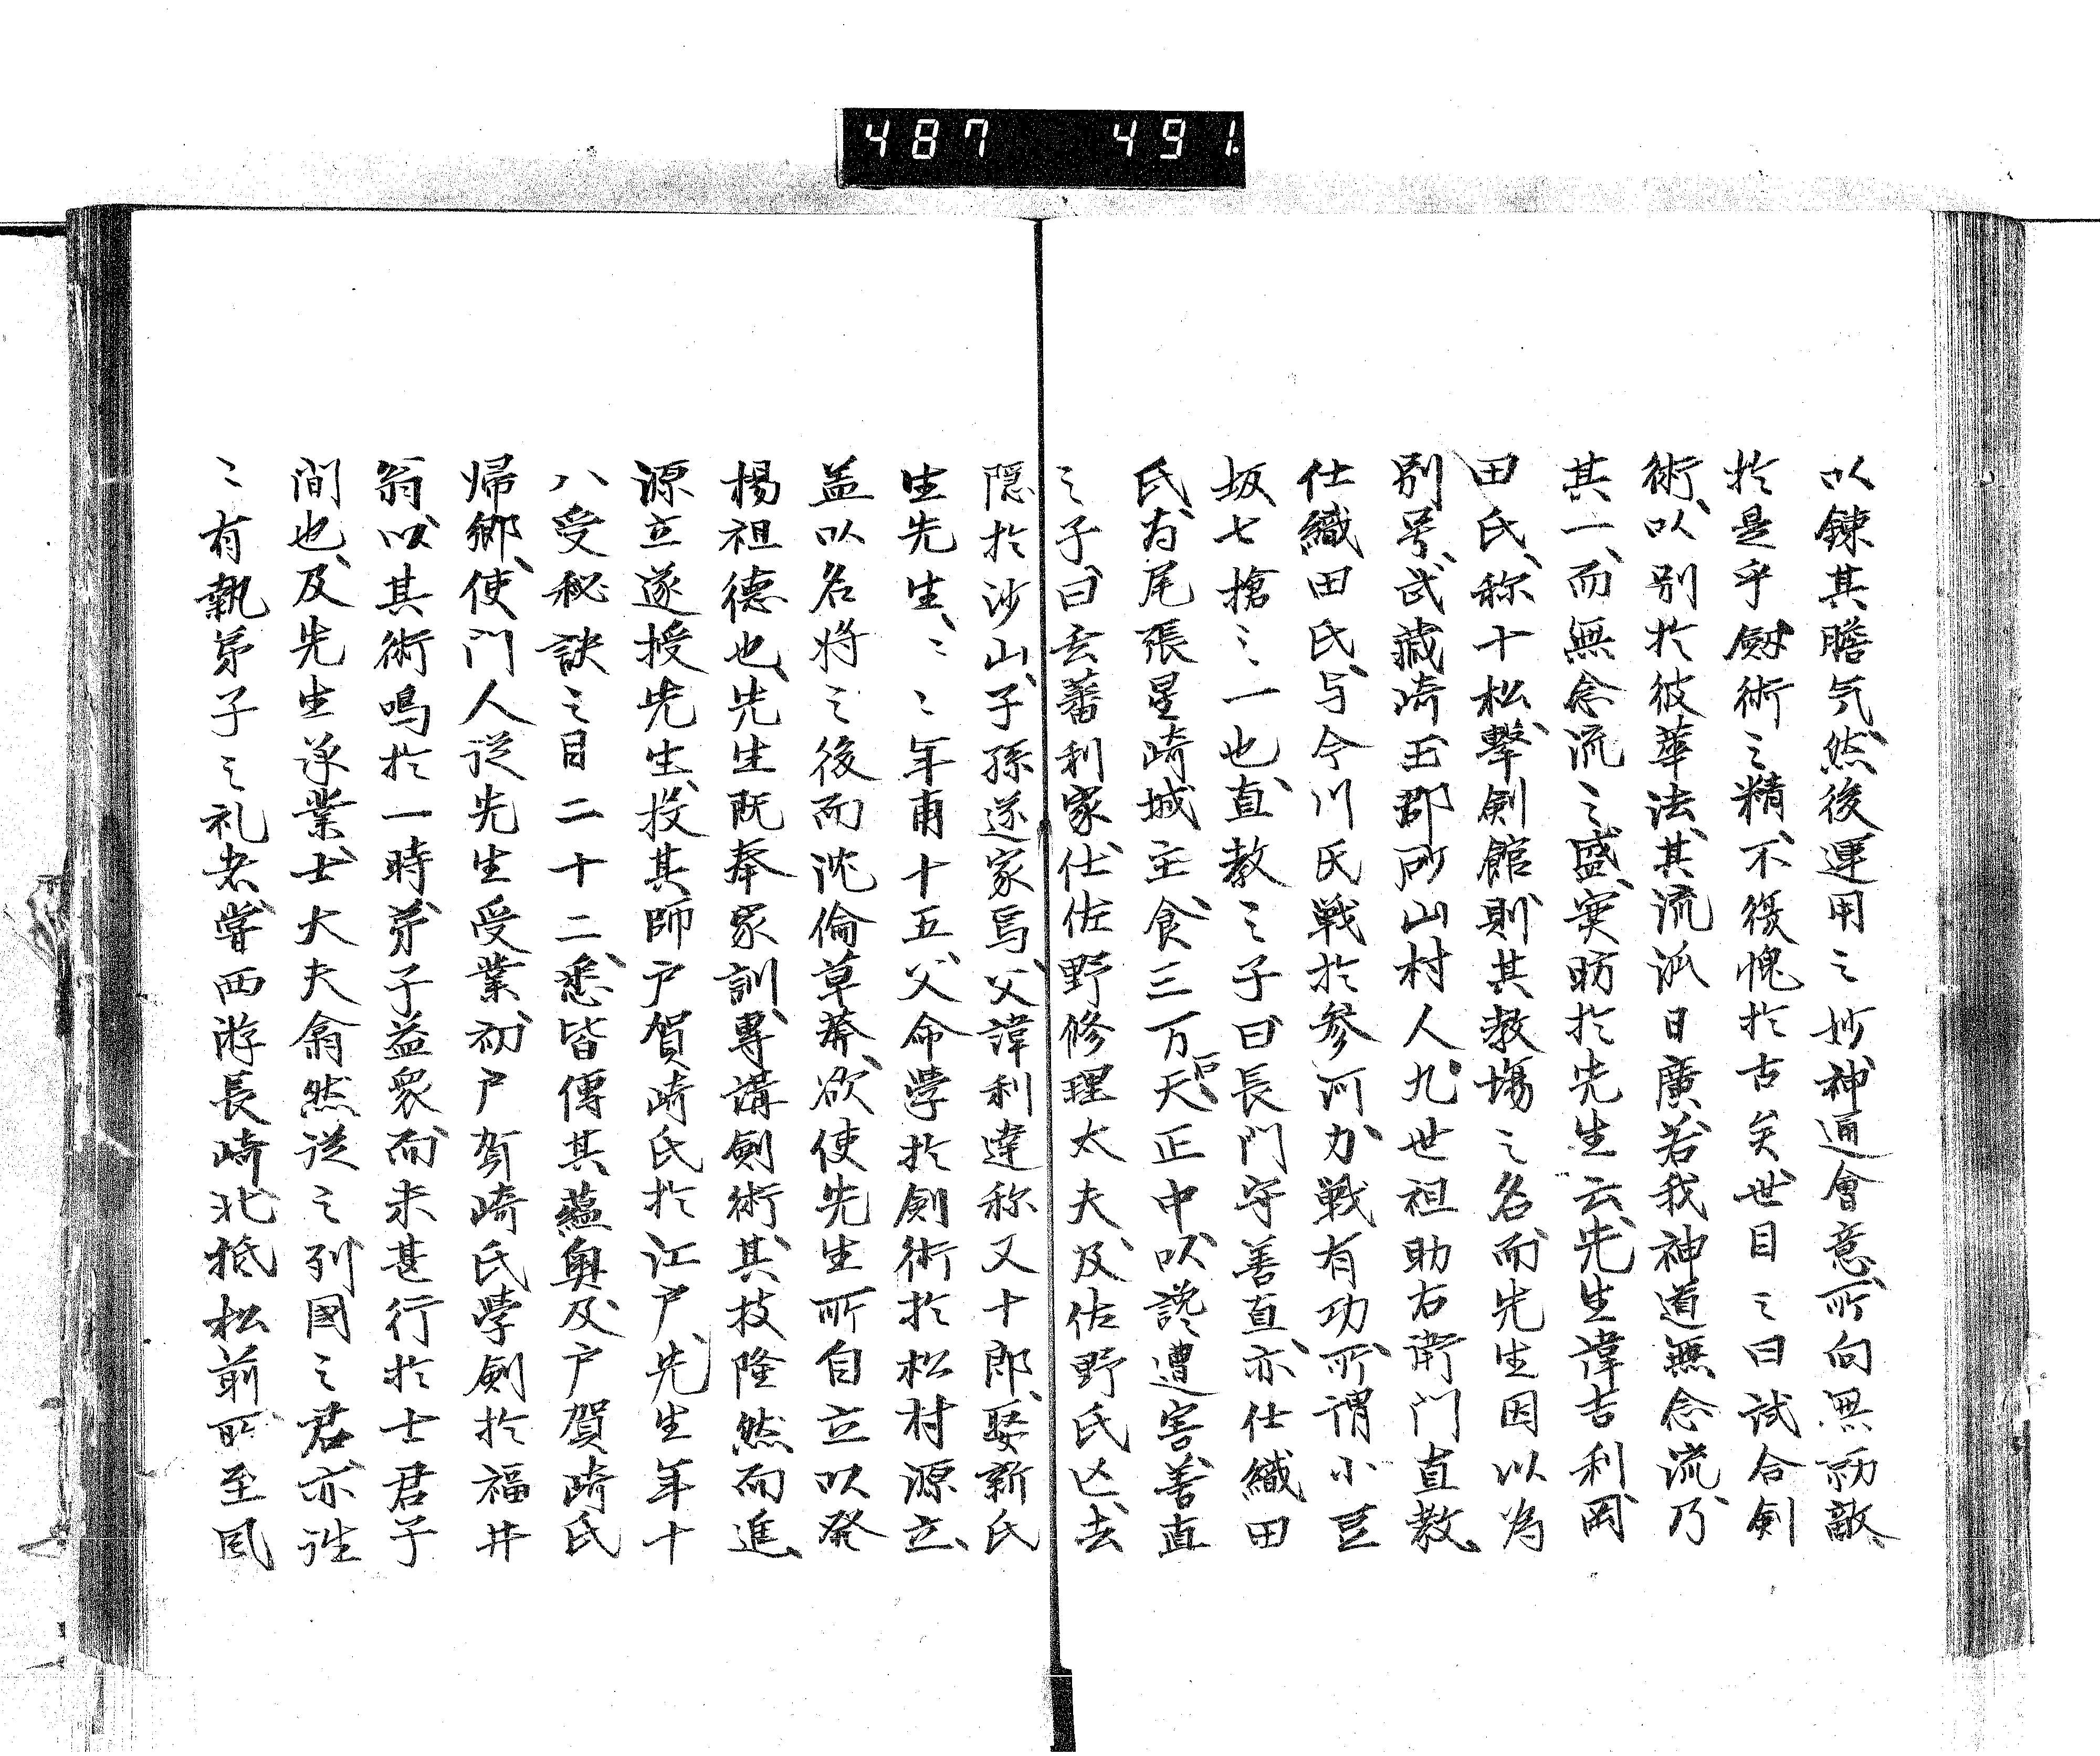 487 491
以錬其膽気、然後運用之妙、神通會意、所向無勍敵、
於是乎劔術之精、不復愧於古矣、世目之曰試合剣
術、以別於彼華法、其流派日廣、若我神道無念流、乃
其一、而無念流之盛、実昉於先生云、先生諱吉利、岡
田氏、称十松、撃剣館、則其教場之名、而先生因以為
別号、武蔵崎玉郡砂山村人、九世祖助右衛門直教、
仕織田氏、与今川氏戦於参河、力戦有功、所謂小豆
坂七槍之一也、直教之子曰長門守善直、亦仕織田
氏、為尾張星崎城主、食三万石、天正中、以讒遭害、善直
之子、曰玄蕃利家、仕佐野修理太夫、及佐野氏亡、去
隠於沙山、子孫遂家焉、父諱利達称又十郎、娶新氏
生先生、〻〻年甫十五、父命学於剣術於松村源立、
盖以名将之後而沈倫草莽、欲使先生所自立以発
揚祖徳也、先生既奉家訓、専講剣術、其技隆然而進、
源立遂授先生、投其師戸賀崎氏於江戸、先生年十
八受秘訣之目二十二、悉皆傳其蘊奥、及戸賀崎氏
帰郷、使門人従先生受業、初戸賀崎氏学剣於福井
翁、以其術鳴於一時、弟子益衆、而未甚行於士君子
間也、及先生承業、士大夫翕然従之、列國之君、亦往
〻有執弟子之礼者、嘗西游長崎、北抵松前、所至風